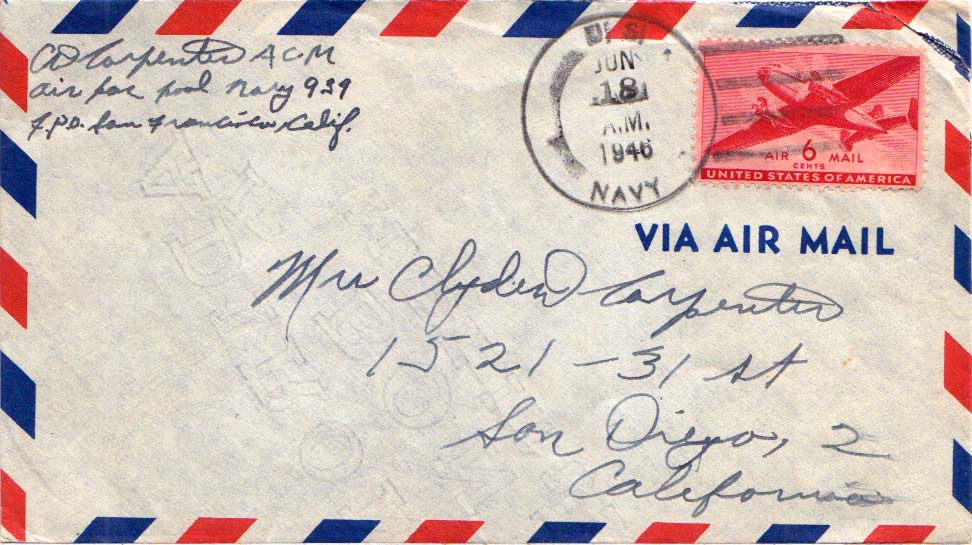 CD Carpenter ACM
Air Pac Pool Navy 939
F.P.O. San Francisco, Calif.
U.S.
JUN
18
A.M.
1946
NAVY
AIR 6 MAIL
CENTS
UNITED STATES OF AMERICA
VIA AIR MAIL
Mrs Clyden Carpenter
1521-31 st
San Diego, 2
California